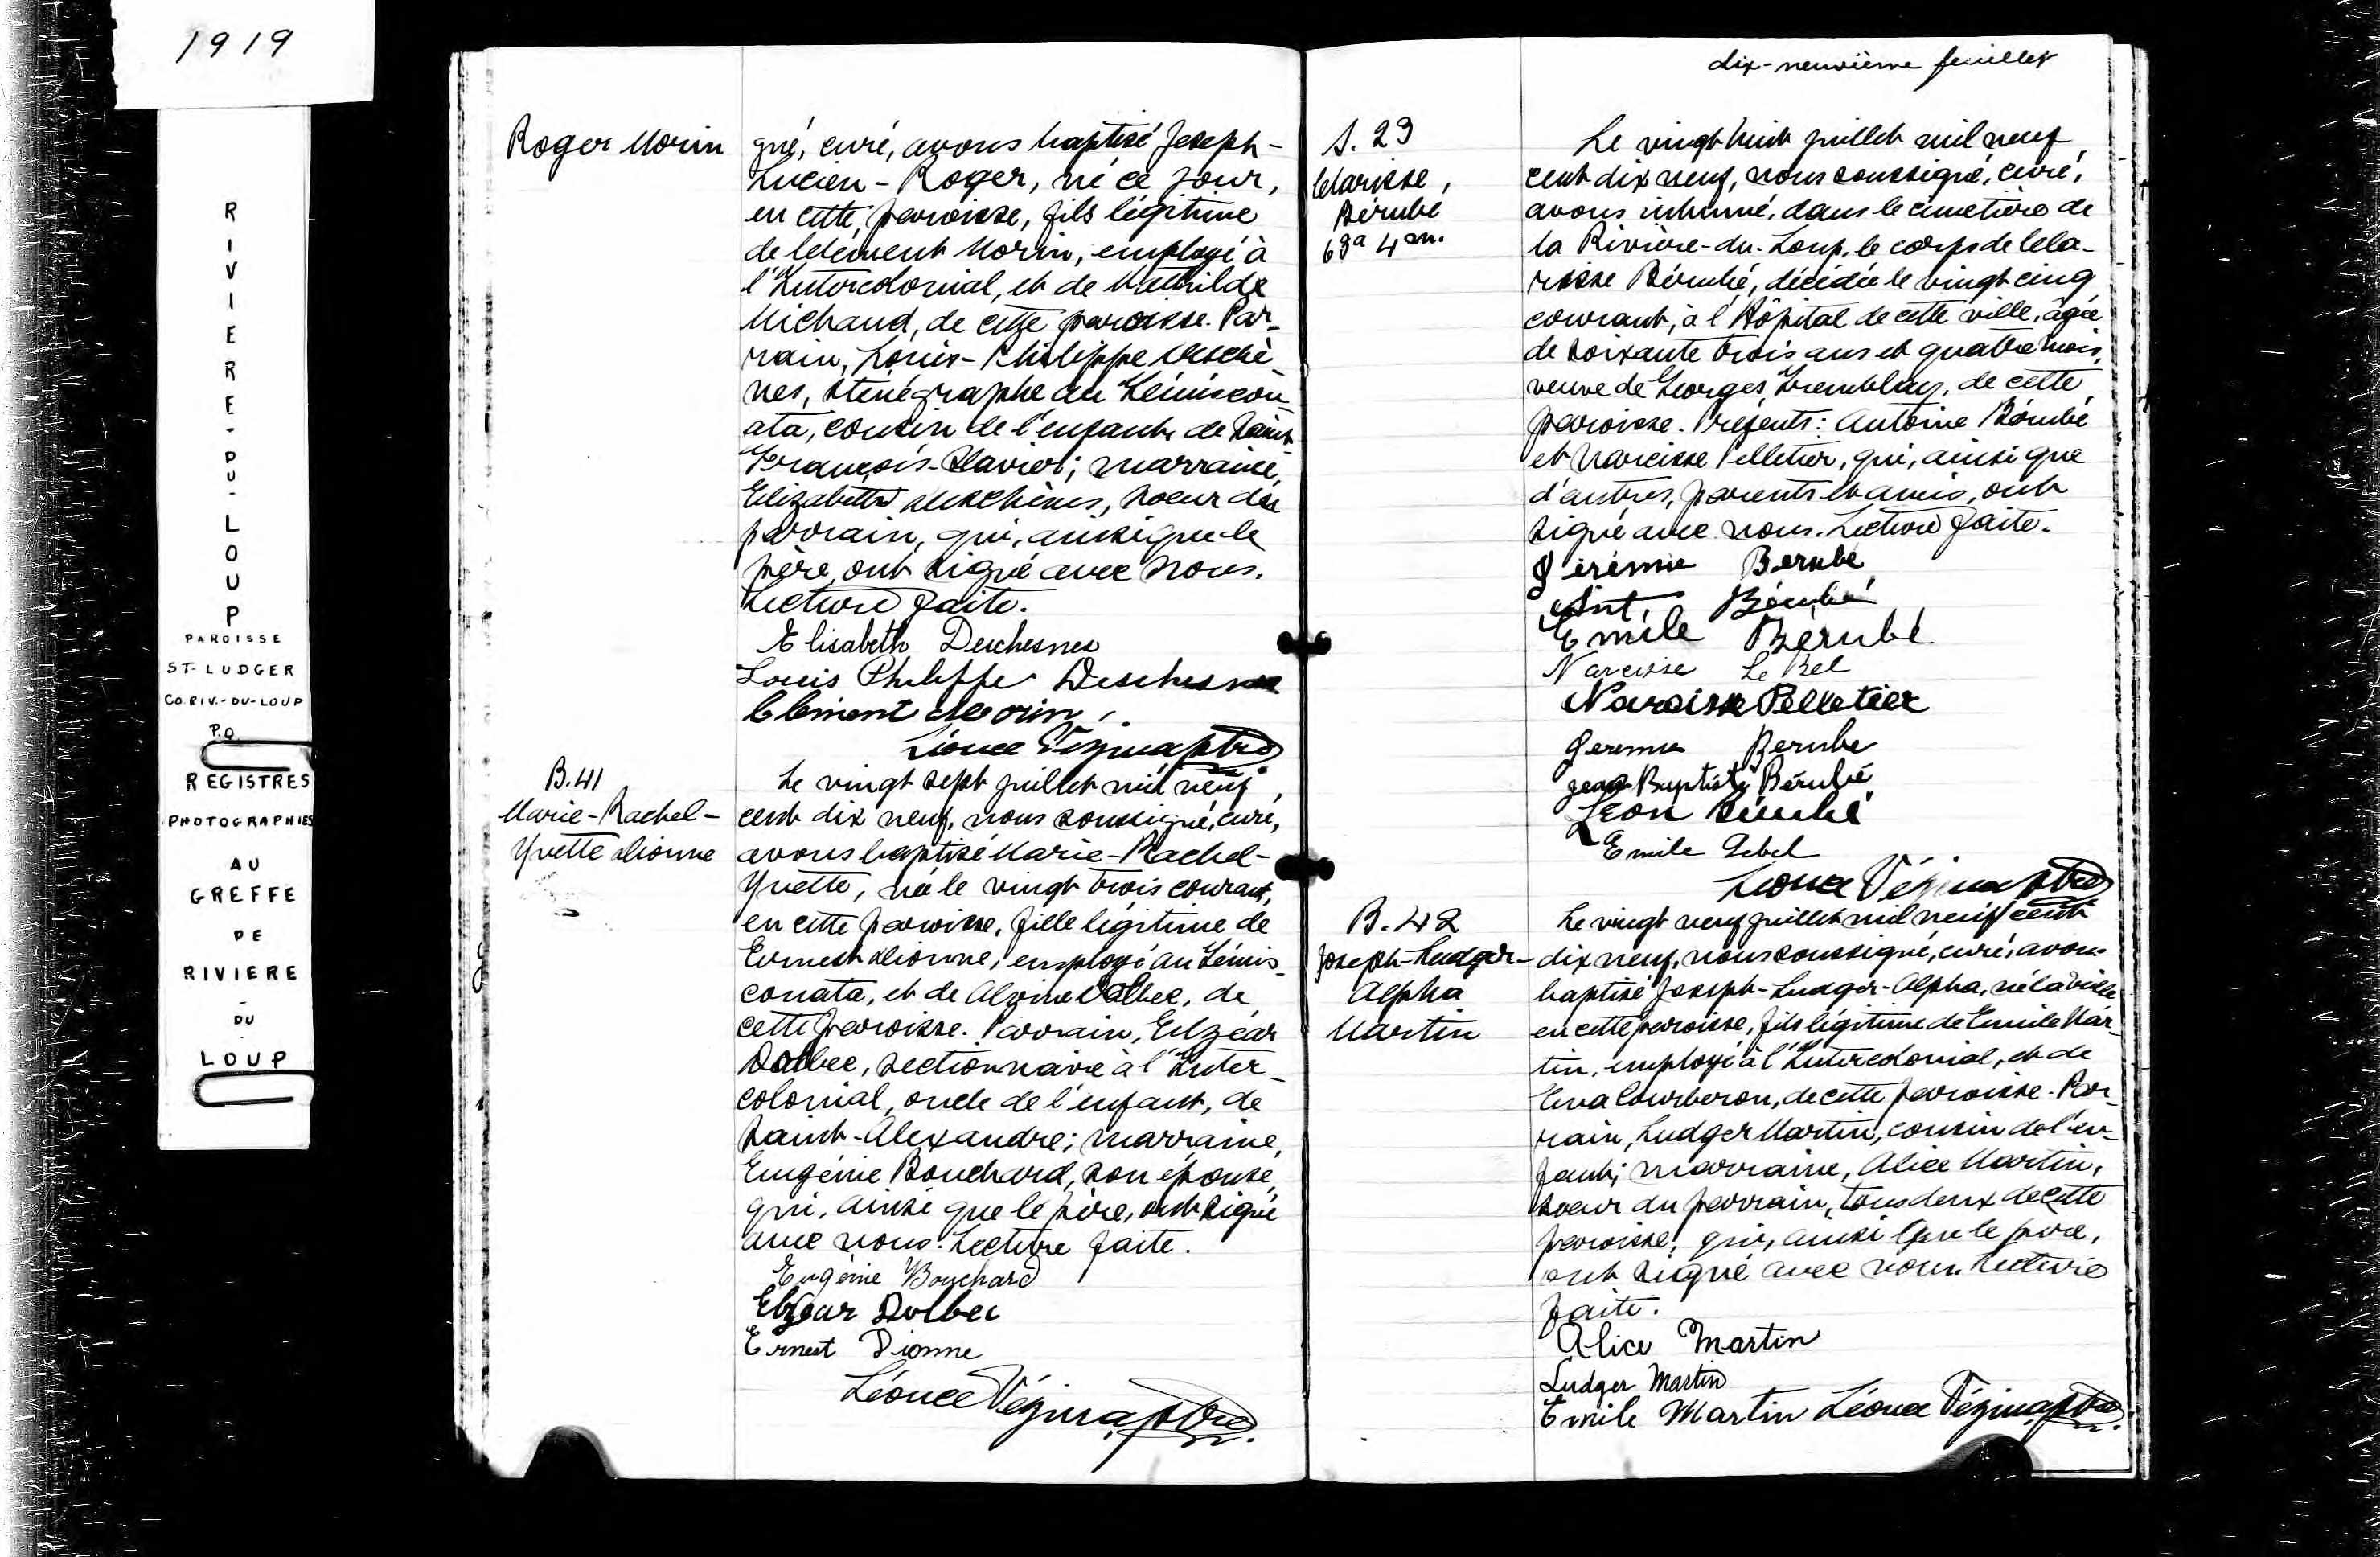 1919
RIVIERE-DU-LOUP
PAROISSE
ST-LUDGER
CO. RIV.-DU-LOUP
P.Q.
REGISTRES
PHOTOGRAPHIES
AU
GREFFE
DE
RIVIERE
-
DU
-
LOUP
Roger Morin
gné, curé, avons baptisé Joseph-
Lucien-Roger, né ce jour,
en cette paroisse, fils légitime
de Clément Morin, employé à
l'Intercolonial, et de Mathilde
Michaud, de cette paroisse. Par-
rain, Louis-Philippe Deschê-
nes, sténographe au Témiscou-
ata, cousin de l'enfant, de Saint-
François-Xavier; marraine,
Elizabeth Deschênes, soeur du
parrain, qui, ainsi que le
père, ont signé avec nous.
Lecture faite.
Elisabeth Deschesnes
Louis Philippe Deschesnes
Clément Morin
Léonce Vézina ptre
B.41
Marie-Rachel-
Yvette Dionne
Le vingt sept juillet mil neuf
cent dix neuf, nous soussigné, curé,
avons baptisé Marie-Rachel-
Yvette, née le vingt trois courant,
en cette paroisse, fille légitime de
Ernest Dionne, employé au Témis-
couata, et de Alvine Dalbec, de
cette paroisse. Parrain, Elzéar
Dalbec, sectionnaire à l'Inter-
colonial, oncle de l'enfant, de
Saint-Alexandre; marraine,
Eugénie Bouchard, son épouse,
qui, ainsi que le père, ont signé
avec nous. Lecture faite.
Eugénie Bouchard
Elzear Dolbec
Ernest Dionne
Léonce Vézina, ptre.
dix-neuvième feuillet
S. 23
Clarisse,
Bérubé
63a 4 m.
Le vingt huit juillet mil neuf
cent dix neuf, nous soussigné, curé,
avons inhumé, dans le cimetière de
la Rivière-du-Loup, le corps de Cla-
risse Bérubé, décédée le vingt cinq
courant, à l'Hôpital de cette ville, âgée
de soixante trois ans et quatre mois,
veuve de Georges Tremblay, de cette
paroisse. Présents: Antoine Bérubé
et Narcisse Pelletier, qui, ainsi que
d'autres, parents et amis, ont
signé avec nous. Lecture faite.
Jérémie Berubé
Ant. Bérubé
Emile Bérubé
Narcisse Le Bel
Narcisse Pelletier
Jeremie Berube
Jean-Baptiste Bérubé
Léon Bérubé
Emile Lebel
Léonce Vézina ptre
B. 42
Joseph-Ludger-
Alpha
Martin
Le vingt neuf juillet mil neuf cent
dix neuf, nous soussigné, curé, avons
baptisé Joseph-Ludger-Alpha, né la veille
en cette paroisse, fils légitime de Emile Mar-
tin, employé à l'Intercolonial, et de
Courberon, de cette paroisse. Par-
rain, Ludger Martin, cousin de l'en-
fant; marraine, Alice Martin,
soeur du parrain, tous deux de cette
paroisse, qui, ainsi que le père,
ont signé avec nous. Lecture
faite.
Alice Martin
Ludger Martin
Emile Martin Léonce Vézina, ptre.